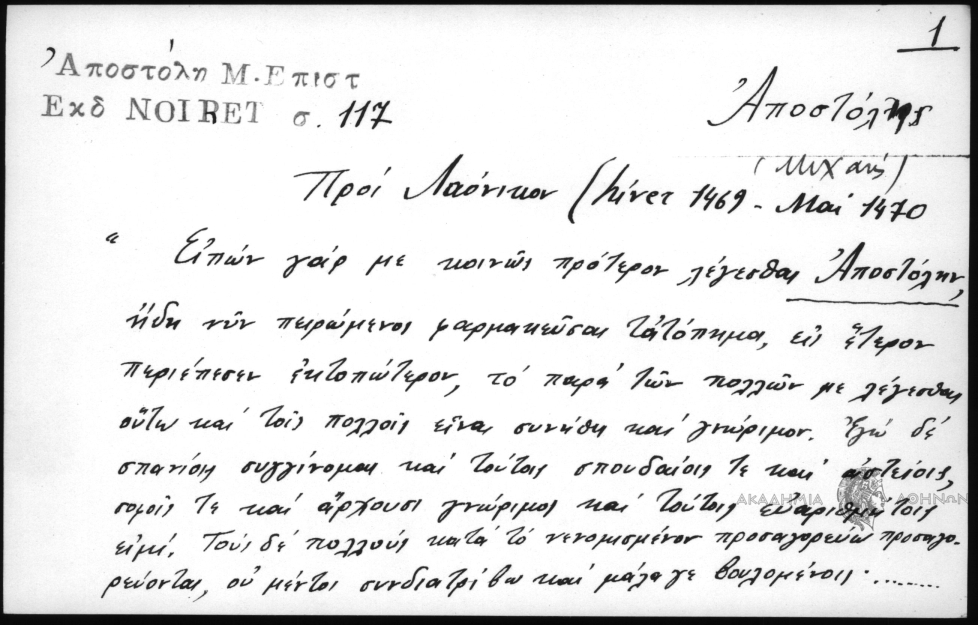 1
Ἀποστόλη Μ. Επιστ
Εκδ NOIRET σ. 117
Ἀποστόλης
(Μιχαήλ)
Πρός Λαόνικον (hiver 1469 - Mai 1470
“ Εἰπών γάρ με κοινῶς πρότερον λέγεσθαι Ἀποστόλην,
ἤδη νῦν πειρώμενος φαρμακεῦσαι τἀτόπημα, εἰς ἕτερον
περιέπεσεν ἐκτοπώτερον, τό παρά τῶν πολλῶν με λέγεσθαι
οὕτω καί τοῖς πολλοῖς εἶναι συνήθη καί γνώριμον. Ἐγώ δέ
σπανίοις συγγίνομαι καί τούτοις σπουδαίοις τε καί ἀστείοις,
σοφοῖς τε καί ἄρχουσι γνώριμος καί τούτοις εὐαριθμήτοις
εἰμί. Τούς δέ πολλούς κατά τό νενομισμένον προσαγορεύω προσαγο-
ρεύοντας, οὐ μέντοι συνδιατρίβω καί μάλα γε βουλομένοις.........
ΑΚΑΔΗΜΙΑ ΑΘΗΝΩΝ